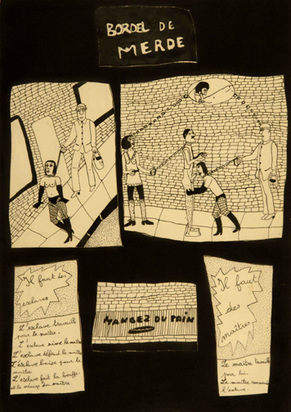 BORDEL DE
MERDE
Il faut des
esclaves
L'esclave travaille
pour le maître.
L'esclave
L'esclave défend le maître
L'esclave baise pour le
maître
L'esclave fait la bouffe
et le ménage du maître.
MANGEZ DU PAIN
Il faut
des
maîtres
Le maître travaille
pour lui.
Le maître
l'esclave.